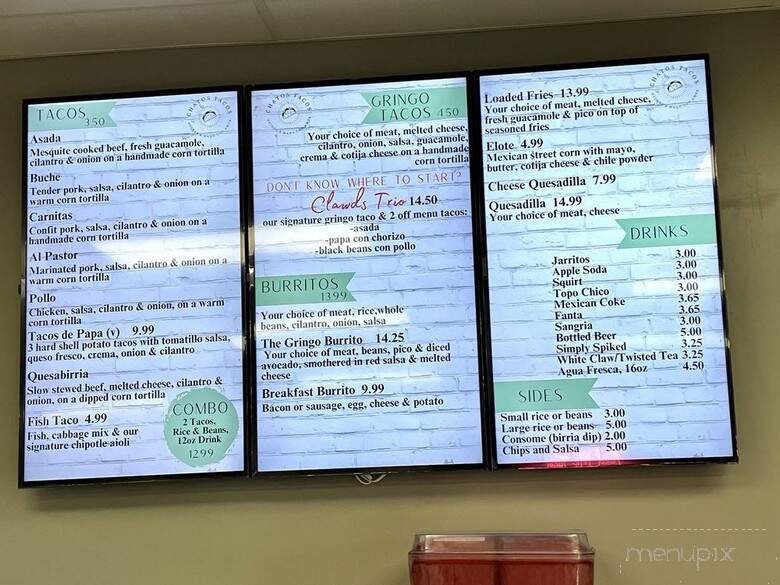 TACOS
3.50
CHATOS TACOS
Asada
Mesquite cooked beef, fresh guacamole,
cilantro & onion on a handmade corn tortilla
Buche
Tender pork, salsa, cilantro & onion on a
warm corn tortilla
Carnitas
Confit pork, salsa, cilantro & onion on a
handmade corn tortilla
Al Pastor
Marinated pork, salsa, cilantro & onion on a
warm corn tortilla
Pollo
Chicken, salsa, cilantro & onion, on a warm
corn tortilla
Tacos de Papa (v) 9.99
3 hard shell potato tacos with tomatillo salsa,
queso fresco, crema, onion & cilantro
Quesabirria
Slow stewed beef, melted cheese, cilantro &
onion, on a dipped corn tortilla
Fish Taco 4.99
Fish, cabbage mix & our
signature chipotle aioli
COMBO
2 Tacos,
Rice & Beans,
12oz Drink
12.99
CHATOS TACOS
GRINGO
TACOS 4.50
Your choice of meat, melted cheese,
cilantro, onion, salsa, guacamole,
crema & cotija cheese on a handmade
corn tortilla
DON'T KNOW WHERE TO START?
Clawds Trio 14.50
our signature gringo taco & 2 off menu tacos:
-asada
-papa con chorizo
-black beans con pollo
BURRITOS
13.99
Your choice of meat, rice,whole
beans, cilantro, onion, salsa
The Gringo Burrito 14.25
Your choice of meat, beans, pico & diced
avocado, smothered in red salsa & melted
cheese
Breakfast Burrito 9.99
Bacon or sausage, egg, cheese & potato
CHATOS TACOS
Loaded Fries 13.99
Your choice of meat, melted cheese,
fresh guacamole & pico on top of
seasoned fries
Elote 4.99
Mexican street corn with mayo,
butter, cotija cheese & chile powder
Cheese Quesadilla 7.99
Quesadilla 14.99
Your choice of meat, cheese
DRINKS
Jarritos 3.00
Apple Soda 3.00
Squirt 3.00
Topo Chico 3.00
Mexican Coke 3.65
Fanta 3.65
Sangria 3.00
Bottled Beer 5.00
Simply Spiked 3.25
White Claw/Twisted Tea 3.25
Agua Fresca, 16oz 4.50
SIDES
Small rice or beans 3.00
Large rice or beans 5.00
Consome (birria dip) 2.00
Chips and Salsa 5.00
menupix